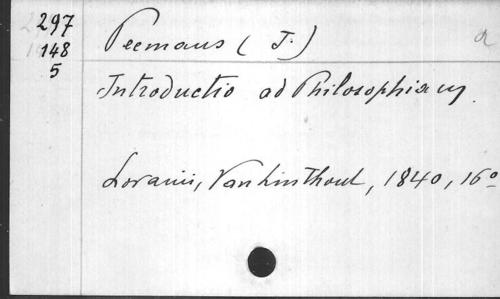 297
148
5
Peemans (J.)
a
Introductio ad Philosophiam
Lovanii, Vanlinthout, 1840, 16º